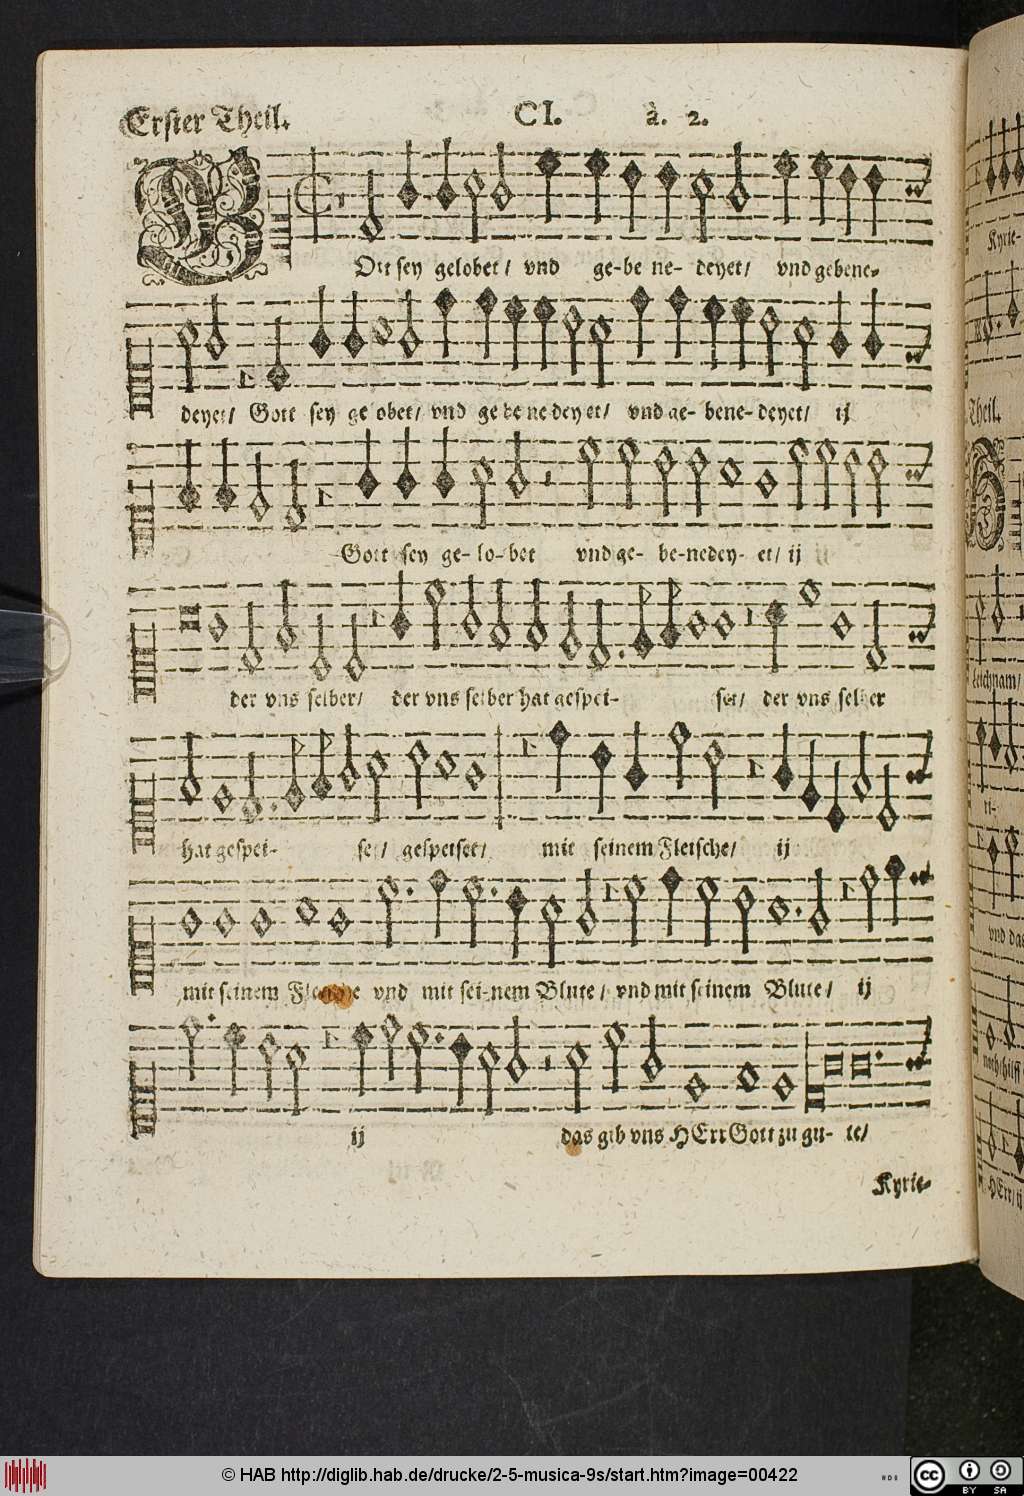 Erster Theil. CI. à. 2.
GOtt sey gelobet / vnd ge-be ne- deyet / vnd gebene-
deyet / Gott sey ge obet / vnd ge be ne dey et / vnd ge- bene- deyet / ij
Gott sey ge- lo- bet vnd ge- be-nedey- et / ij
der vns selber / der vns selber hat gespei- set / der vns selber
hat gespei- set / gespeiset / mit seinem Fleische / ij
mit seinem vnd mit sei-nem Blute / vnd mit seinem Blute / ij
ij das gib vns HErr Gott zu gu- te /
Kyrie-
Kyrie-
Theil.
Leichnam /
ri-
vnd das
HErr / ij
© HAB http://diglib.hab.de/drucke/2-5-musica-9s/start.htm?image=00422
cc BY SA